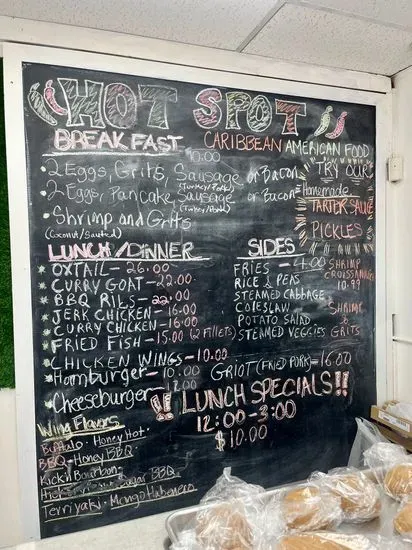 HOT SPOT
BREAKFAST
CARIBBEAN AMERICAN FOOD
10.00
• 2 Eggs, Grits, Sausage or Bacon
(Turkey/Pork)
• 2 Eggs, Pancake, Sausage or Bacon
(Turkey/Pork)
• Shrimp and Grits
(Coconut/Sauted)
TRY OUR
Homemade
TARTER SAUCE
PICKLES
LUNCH/DINNER
* OXTAIL - 26.00
* CURRY GOAT - 22.00
* BBQ RIBS - 22.00
* JERK CHICKEN - 16.00
* CURRY CHICKEN - 16.00
* FRIED FISH - 15.00 (2 FILLETS)
* CHICKEN WINGS - 10.00
* Hamburger - 10.00
* Cheeseburger - 12.00
SIDES
FRIES - 4.00
RICE & PEAS
STEAMED CABBAGE
COLESLAW
POTATO SALAD
STEAMED VEGGIES
SHRIMP
CROISSANT
10.99
SHRIMP
GRITS
GRIOT (FRIED PORK) - 16.00
!! LUNCH SPECIALS!!
12:00 - 3:00
$10.00
Wing Flavors
Buffalo • Honey Hot •
BBQ • Honey BBQ •
Kick'n Bourbon •
Sugar BBQ •
Terriyaki • Mango Habanero